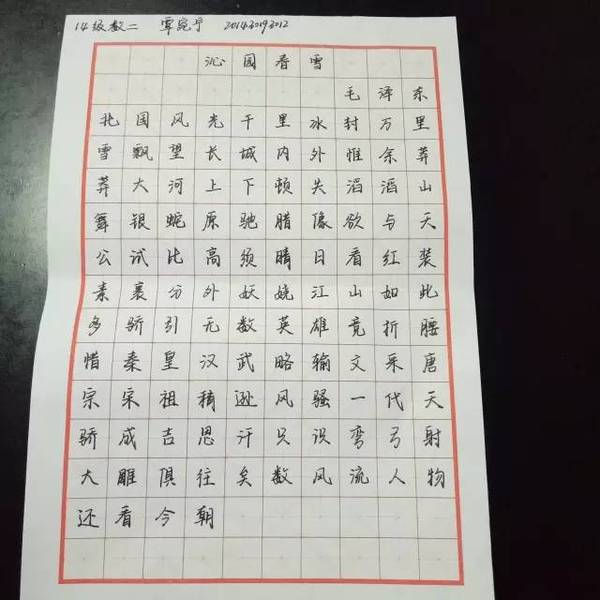 14级数二 覃宛宁 2014301923012
沁园春雪
毛泽东
北国风光千里冰封万里
雪飘望长城内外惟余莽
莽大河上下顿失滔滔山
舞银蛇原驰腊像欲与天
公试比高须晴日看红装
素裹分外妖娆江山如此
多骄引无数英雄竞折腰
惜秦皇汉武略输文采唐
宗宋祖稍逊风骚一代天
骄成吉思汗只识弯弓射
大雕俱往矣数风流人物
还看今朝